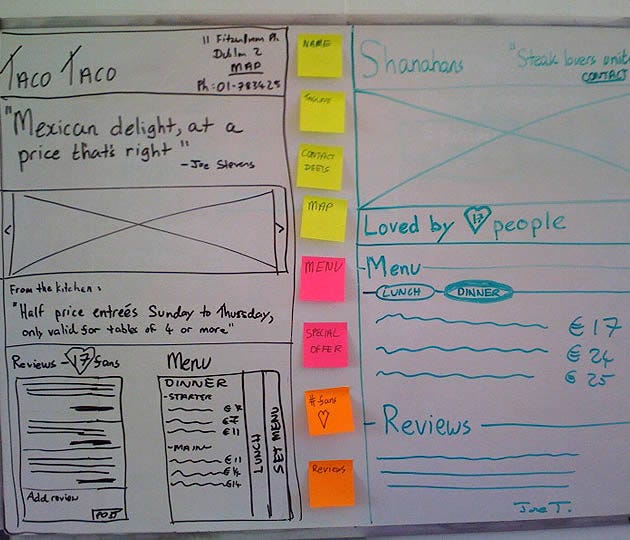 11 Fitzwilliam Pl.
Dublin 2
MAP
Ph: 01-783425
TACO TACO
"Mexican delight, at a
price that's right"
- Joe Stevens
<
>
From the kitchen:
"Half price entreés Sunday to Thursday,
only valid for tables of 4 or more"
Reviews - 17 fans
Add review
POST
Menu
DINNER
- STARTER
€7
€11
- MAIN
€11
€14
€14
LUNCH
SET MENU
NAME
TAGLINE
CONTACT
DEETS
MAP
MENU
SPECIAL
OFFER
# fans
Reviews
Shanahans
"Steak lovers unite
CONTACT
Loved by 17 people
Menu
LUNCH
DINNER
€17
€24
€25
Reviews
Jane T.